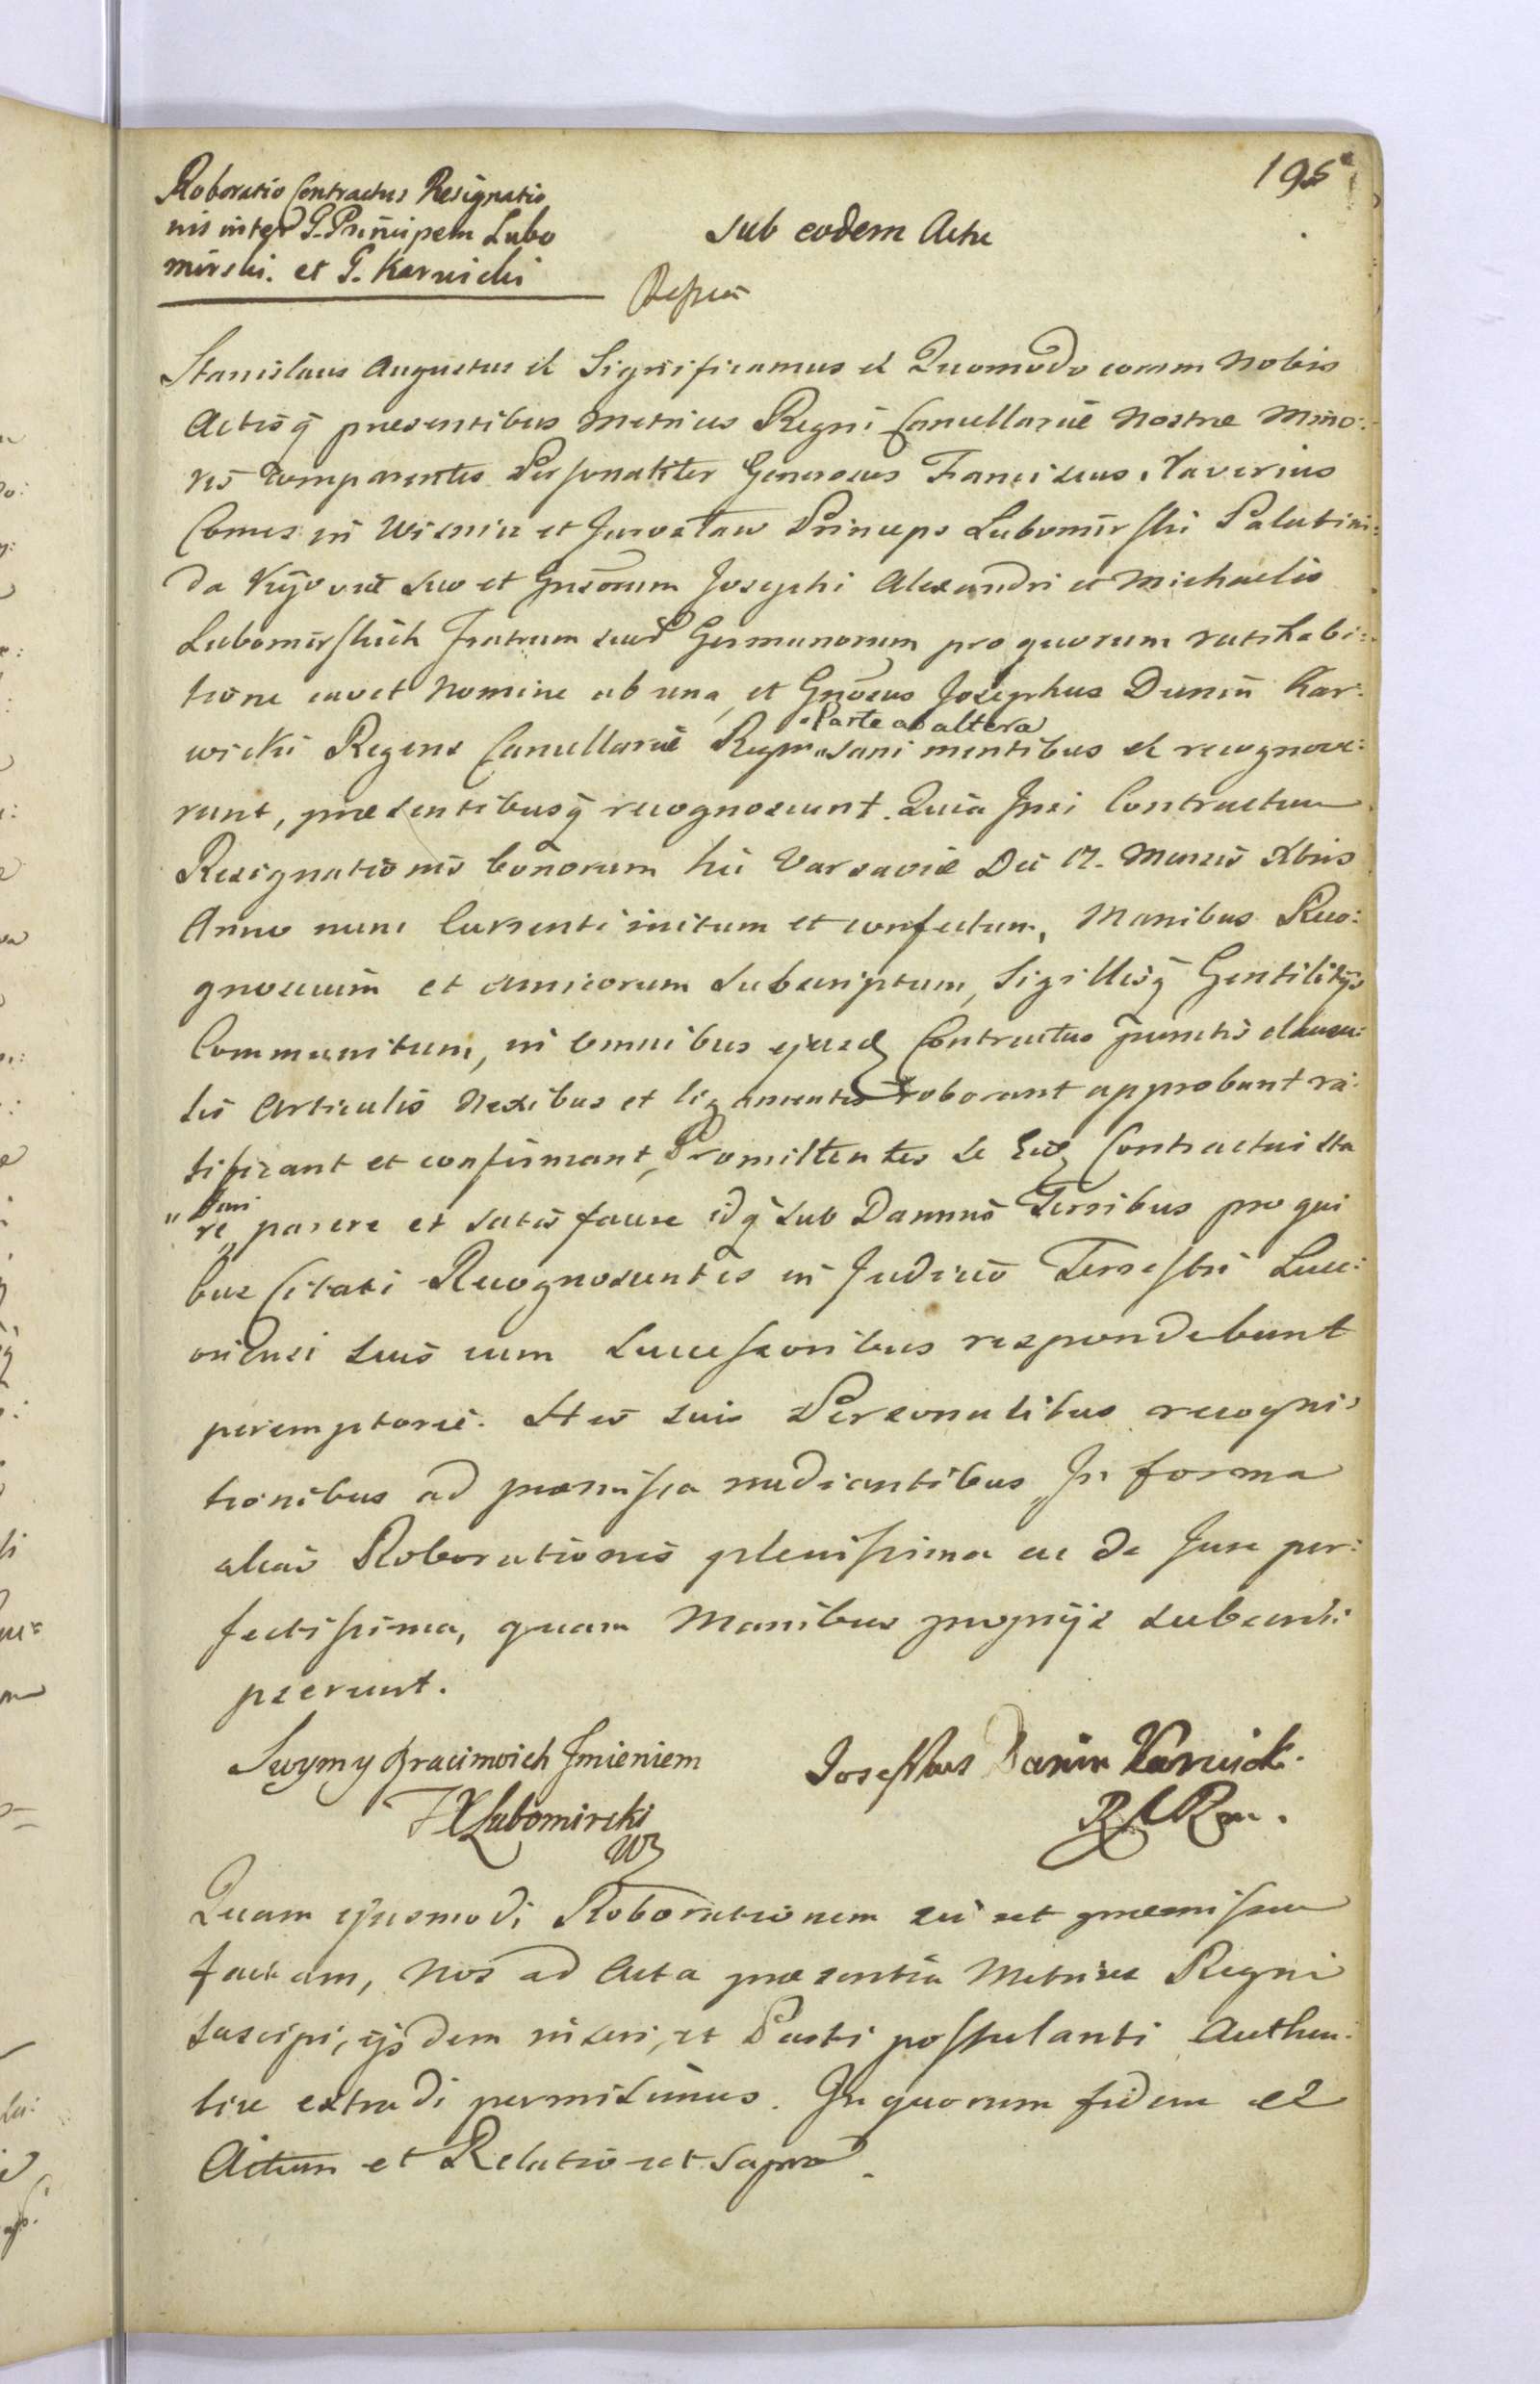 195
Roboratio Contractus Resignatio
nis inter G. Principem Lubo
mirski. et G. Karwicki
Sub eodem Actu
Stanislaus Augustus et Significamus et Quomodo coram Nobis
Actisq̃ praesentibus Metrices Regni Cancellariæ Nostræ Mino:
ris comparentes Personaliter Generosus Franciscus Xaverius
Comes in Wisnicz et Jarosław Princeps Lubomirski Palatini:
da Kijoviæ suo et Gnsorum Josephi Alexandri et Michaelis
Lubomirskich Fratrum suor Germanorum pro quorum ratihabi:
tione cavet Nomine ab una, et Gnosus Josephus Dunin Kar:
wicki Regens Cancellariæ Regni "Parte ab altera" sani mentibus et recognove:
runt, præsentibusq̃ recognoscunt. Quia Ipsi Contractum
Resignationis bonorum hic Varsaviæ Die 17. Mensis Xbris
Anno nunc Currenti initum et confectum, Manibus Reco:
gnoscum et amicorum subscriptum, Sigillisq̃ Gentilitijs
Communitum, in omnibus ejusd Contractus punctis clausu:
lis Articulis Nexibus et ligamentis roborant approbant ra:
tificant et confirmant, Promittentes se Eid Contractui sta
re, parere et satisfacere idq̃ sub Damnis Terribus pro qui
bus Citati Recognoscentes in Judicio Terrestri Luce:
oriensi suis cum Successoribus respondebunt
peremptorie. His suis Personalibus recogni:
tionibus ad præmissa mediantibus, In forma
alias Roborationis plenissima ac de Jure per:
fectissima, quam Manibus proprijs subscri:
pserunt.
Swym y Bracimoich Jmieniem
FXLubomirski
Josephus Dunin Karwick.
RCRm.
Quam ejusmodi Roborationem sic ut præmissum
factam, Nos ad Acta præsentia Metrices Regni
suscipi, ijsdem inseri, et Parti postulanti Authen:
tice extradi permisimus. In quorum fidem et
Actum et Relatio ut supra.